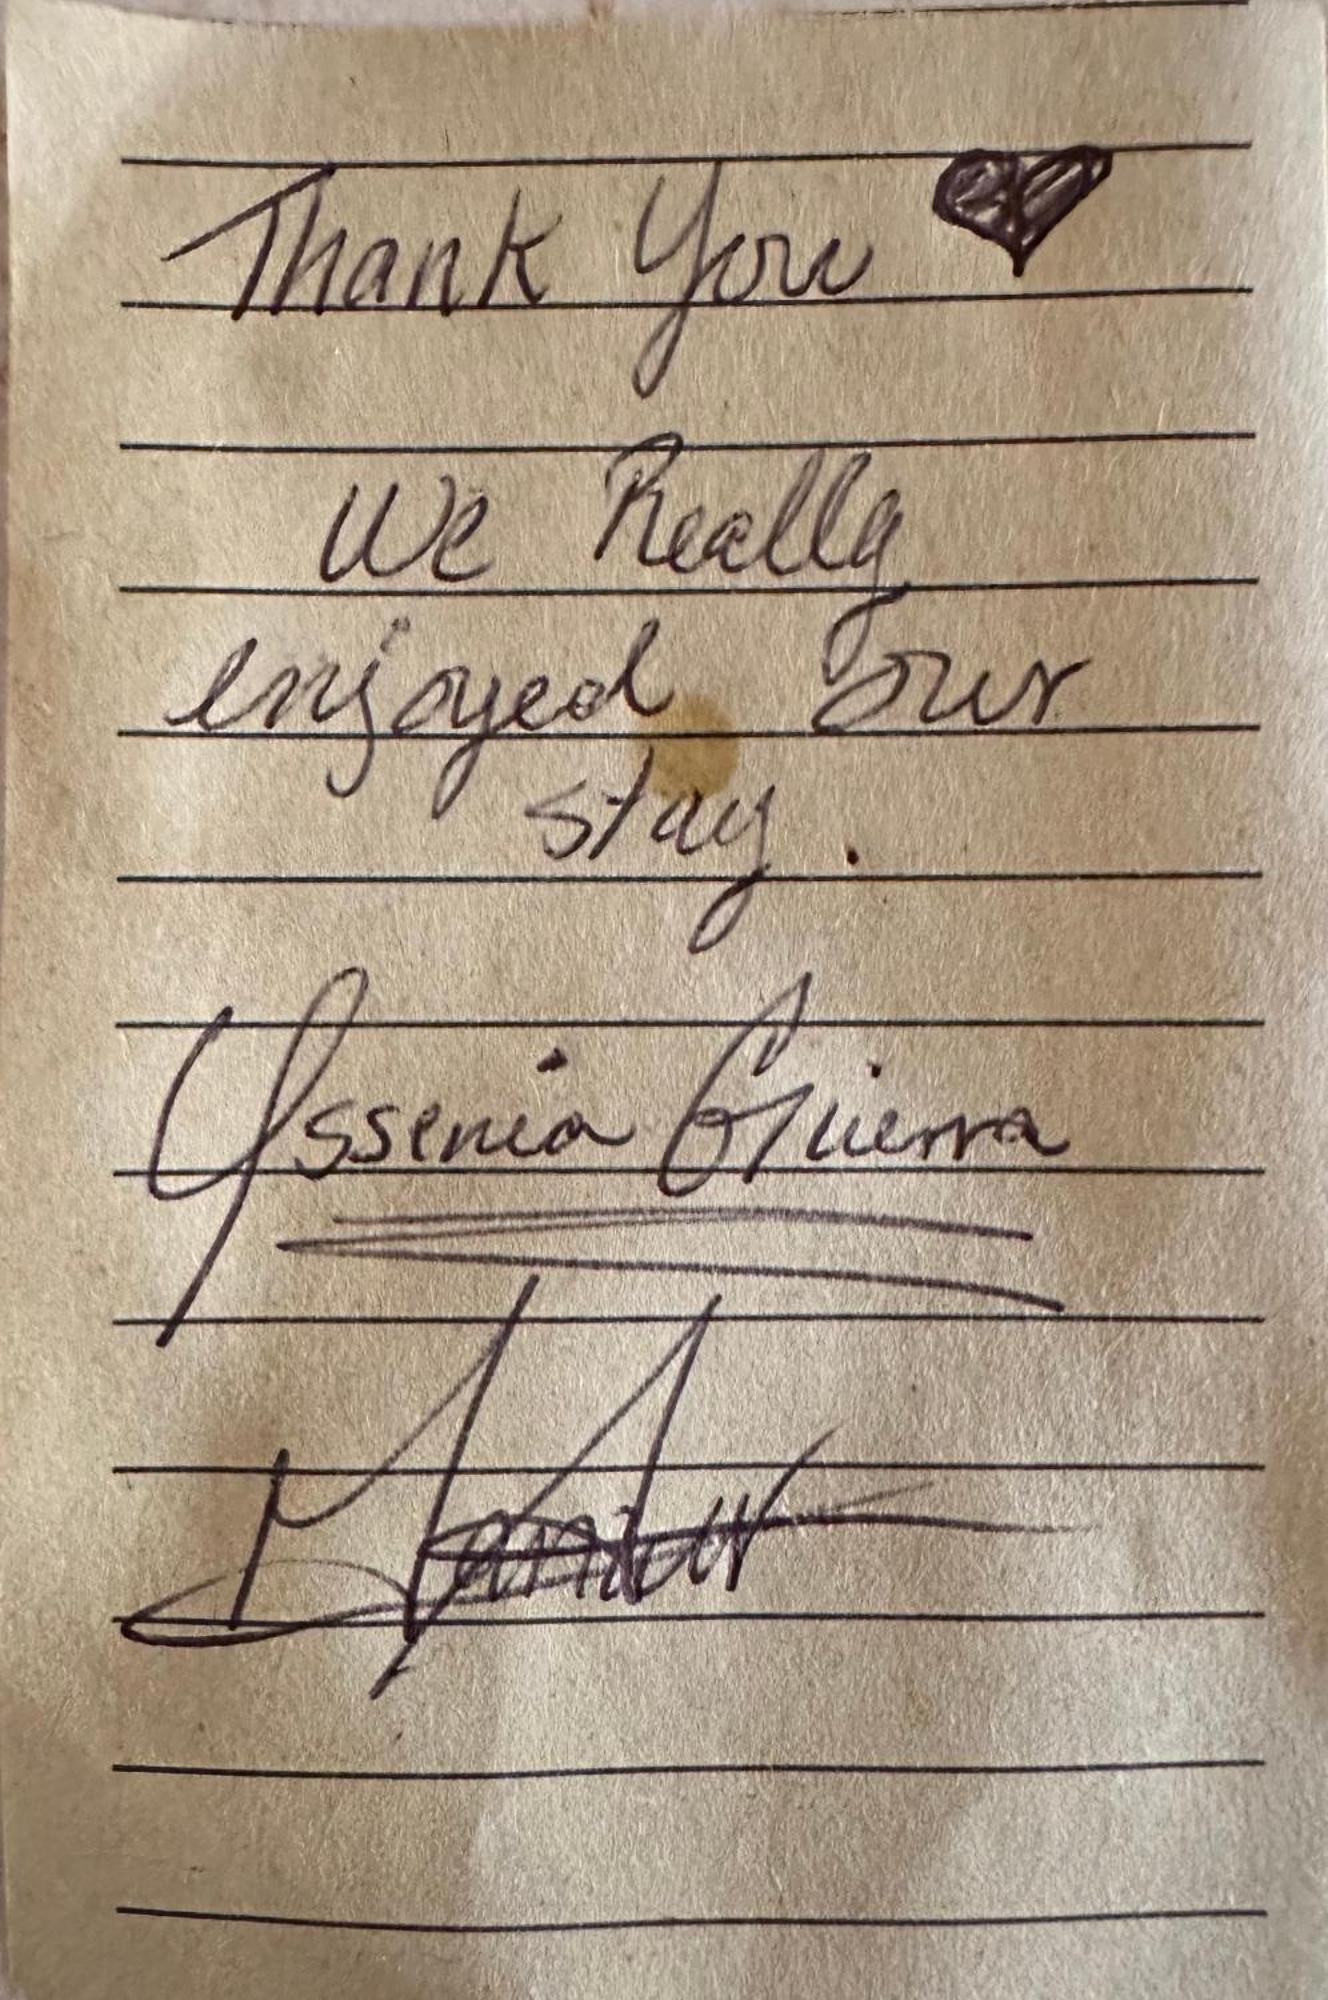 Thank You
We Really
enjoyed our
stay.
Yssenia Guerra